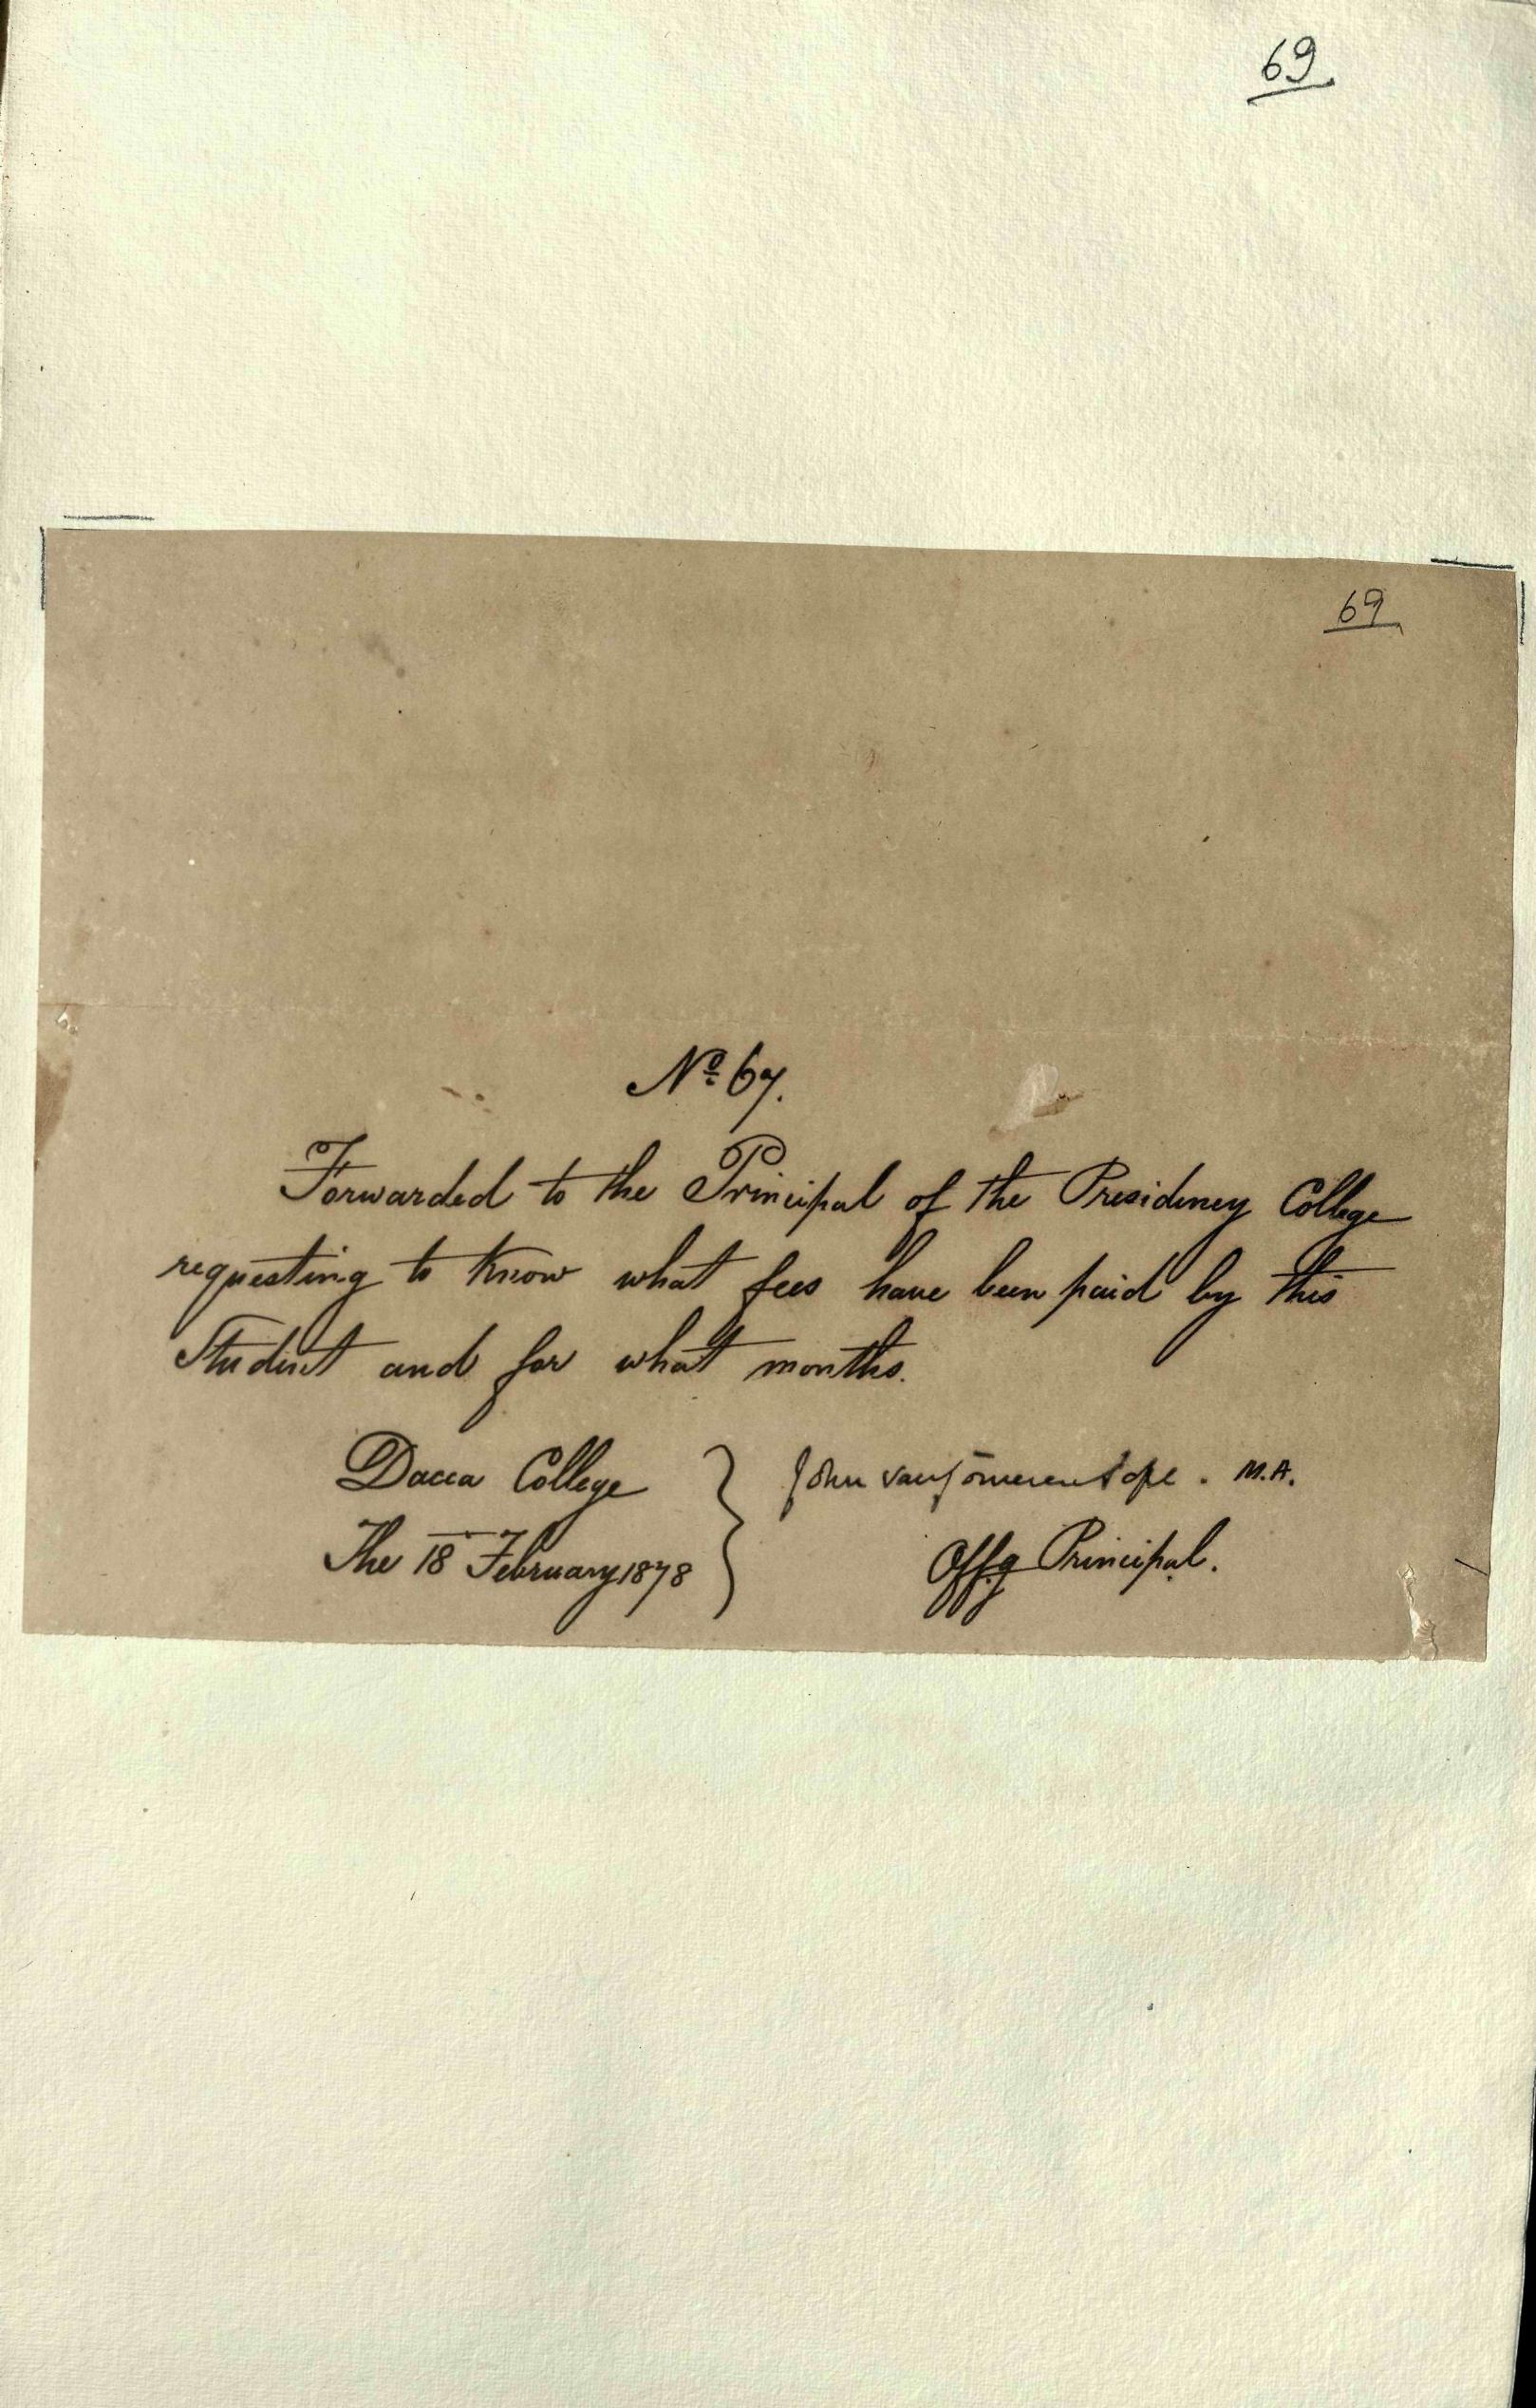 69
69
Nº 67.
Forwarded to the Principal of the Presidency College
requesting to know what fees have been paid by this
Student and for what months.
Dacca College
John van Someren Pope. M.A.
The 18 February 1878
Offg Principal.